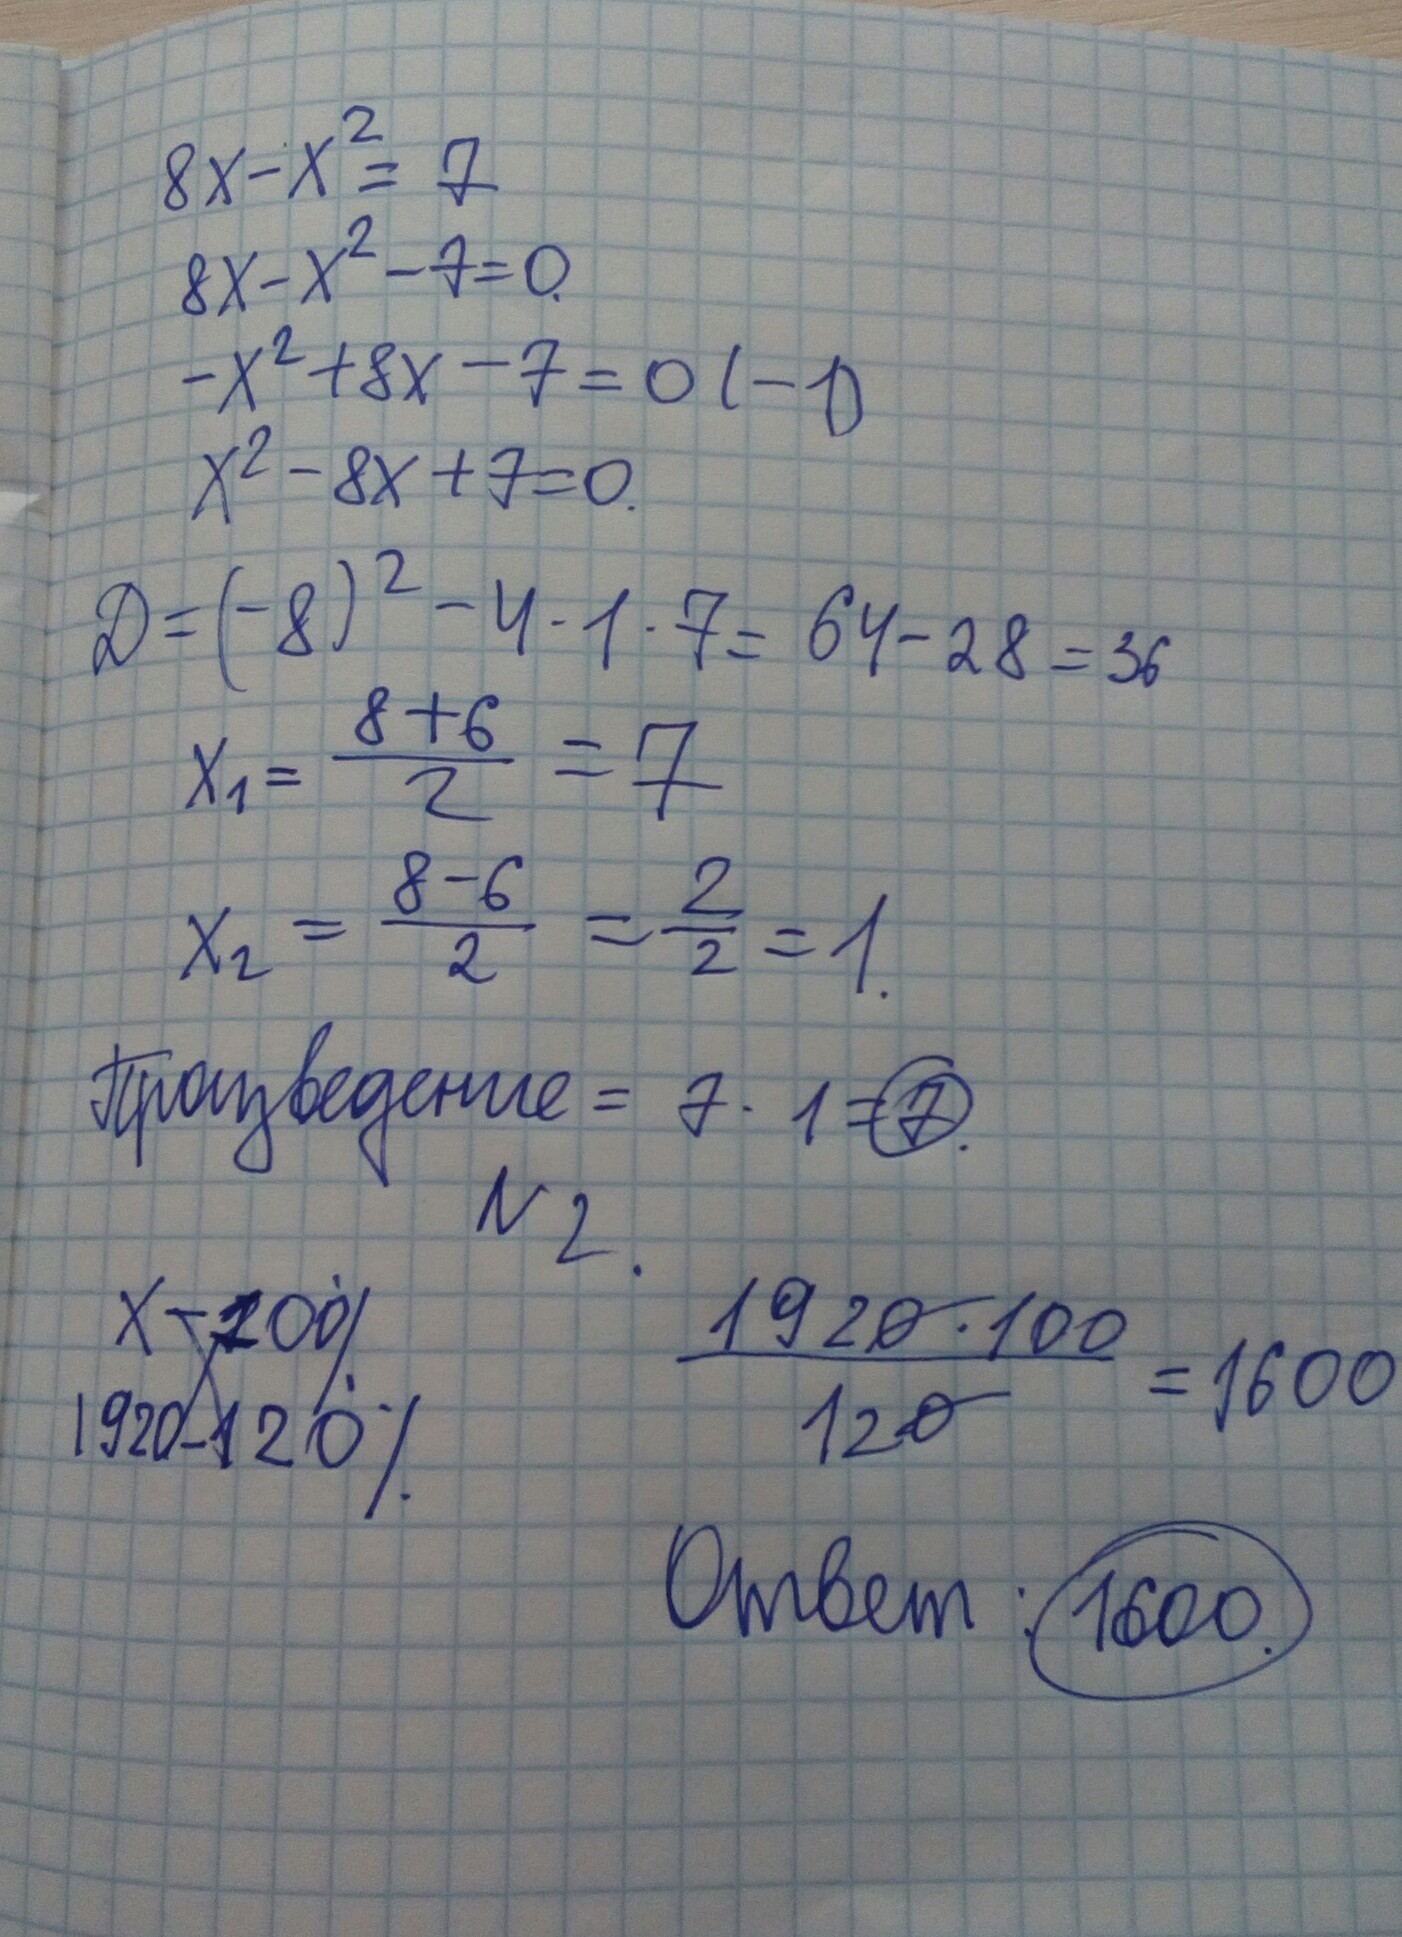 8x-x²=7
8x-x²-7=0.
-x²+8x-7=0 (-1)
x²-8x+7=0.
D=(-8)²-4·1·7=64-28=36
x₁=(8+6)/2=7
x₂=(8-6)/2=2/2=1.
Произведение=7·1=7.
N2.
x-100%
1920-120%.
(1920·100)/120=1600
Ответ: 1600.